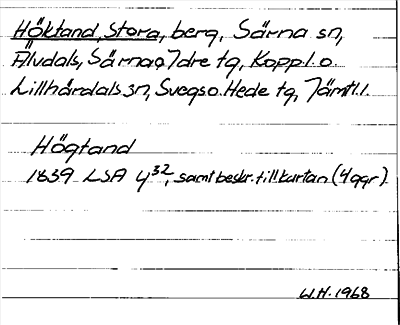 Höktand, Stora, berg, Särna sn,
Älvdals, Särna o Idre tg, Koppl. o.
Lillhärdals sn, Svegs o. Hede tg, Jämtl. l.
Högtand
1839 LSA Y³², samt beskr. till kartan (4 ggr).
W.H. 1968